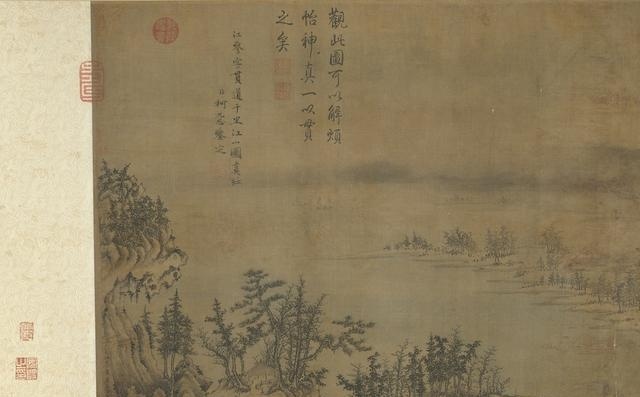 觀此圖可以解煩
怡神真一以貫
之矣
江參字貫道千里江山圖真
柯九思鑒定